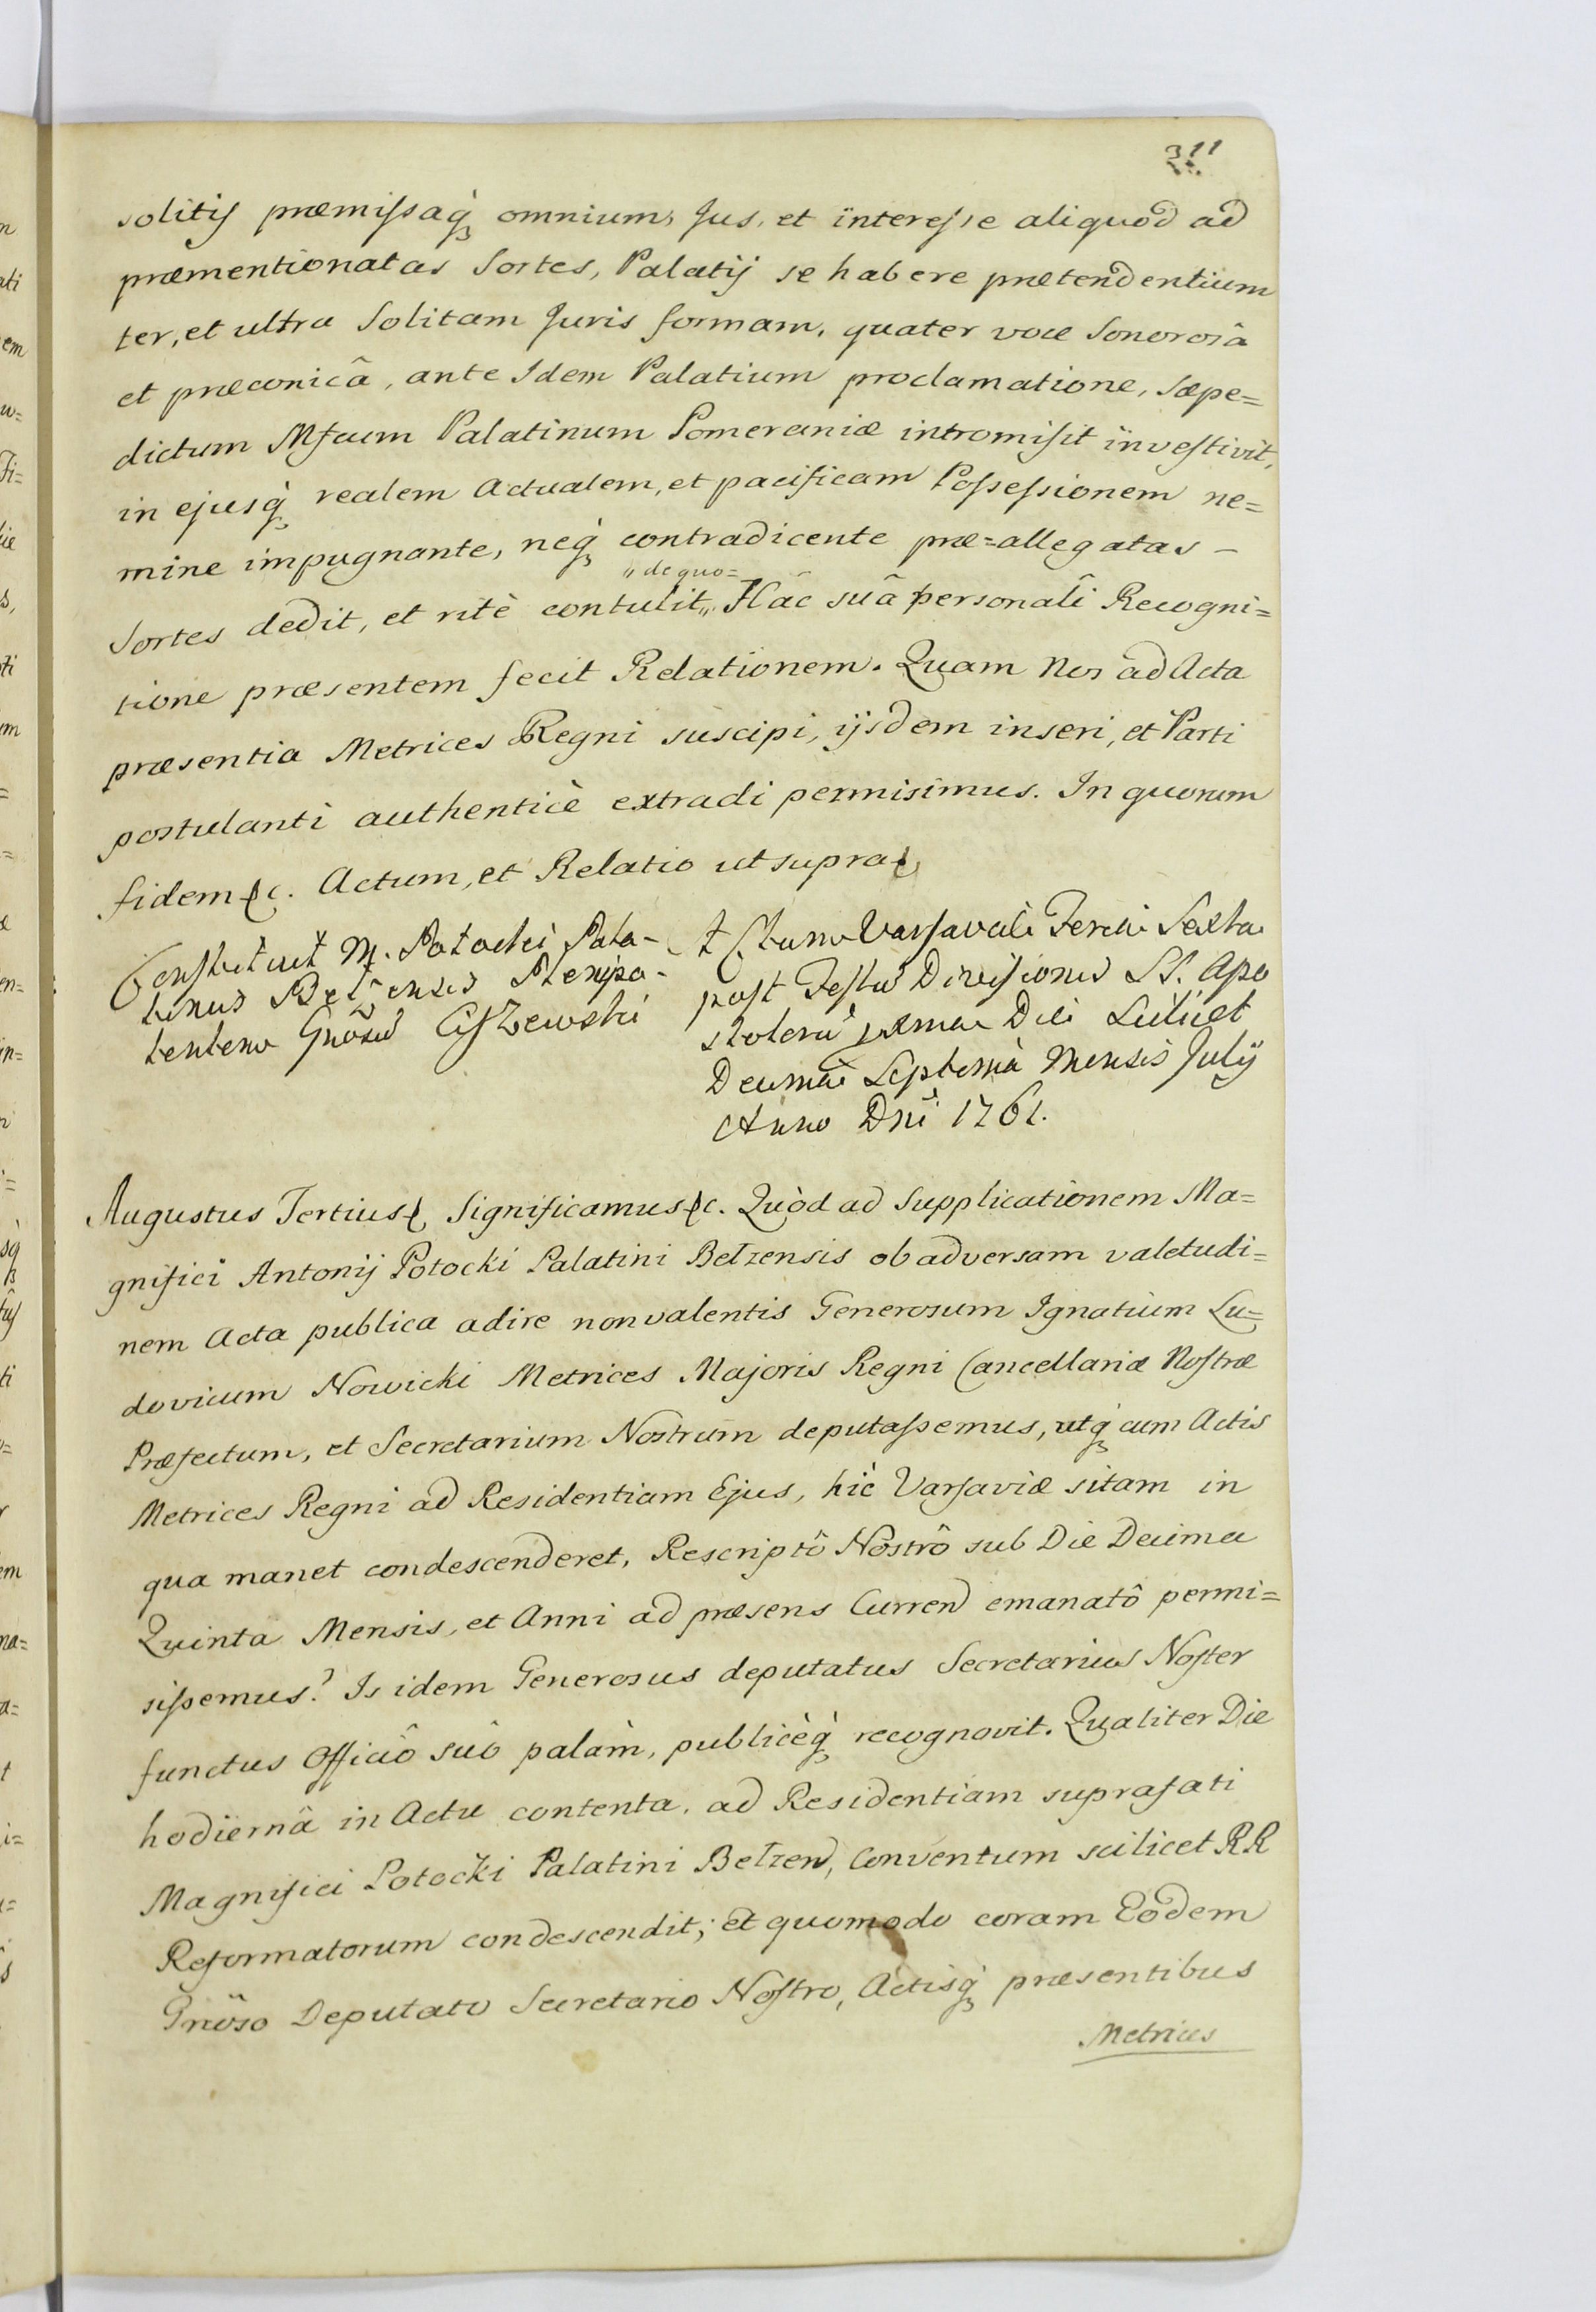 311
solitis præmissaq́ꝫ omnium, Jus, et interesse aliquod ad
præmentionatas Sortes, Palatij se habere prætendentium
ter, et ultra Solitam Juris formam, quater voce Sonorosâ
et præconicâ, ante Idem Palatium proclamatione, Sæpe=
dictum Mfcum Palatinum Pomeraniæ intromisit investivit,
in ejusq́ꝫ realem Actualem, et pacificam Possessionem ne=
mine impugnante, neq́ꝫ contradicente præ=allegatas –
"de quo=
Sortes dedit, et ritè contulit,, Hâc suâ personali Recogni=
tione præsentem fecit Relationem. Quam Nos ad Acta
præsentia Metrices Regni suscipi, ijsdem inseri, et Parti
postulanti authenticè extradi permisimus. In quorum
fidem &c. Actum, et Relatio ut supra &
Constituit M. Potocki Pala-
tinus Belzensis Plenipo-
tentem Gnosū Ciszewski
Actum Varsaviæ Feria Sexta
post Festū Divisionis SS. Apo
stolorū prima Die Scilicet
Decima Septima Mensis July
Anno Dni 1761.
Augustus Tertius & Significamus &c. Quòd ad Supplicationem Ma=
gnifici Antonij Potocki Palatini Bełzensis ob adversam valetudi=
nem Acta publica adire non valentis Generosum Ignatium Lu=
dovicum Nowicki Metrices Majoris Regni Cancellariæ Nostræ
Præfectum, et Secretarium Nostrum deputassemus, utq́ꝫ cum Actis
Metrices Regni ad Residentiam Ejus, hic Varsaviæ sitam in
qua manet condescenderet, Rescriptô Nostrô sub Die Decima
Quinta Mensis, et Anni ad præsens Curren emanatô permi=
sissemus? Is idem Generosus deputatus Secretarius Noster
functus Officiô suô palàm, publicèq́ꝫ recognovit. Qualiter Die
hodiernâ in Actu contenta, ad Residentiam suprafati
Magnifici Potocki Palatini Bełzen, Conventum scilicet RR
Reformatorum condescendit; et quomodo coram Eodem
Gnöso Deputato Secretario Nostro, Actisq́ꝫ præsentibus
Metrices